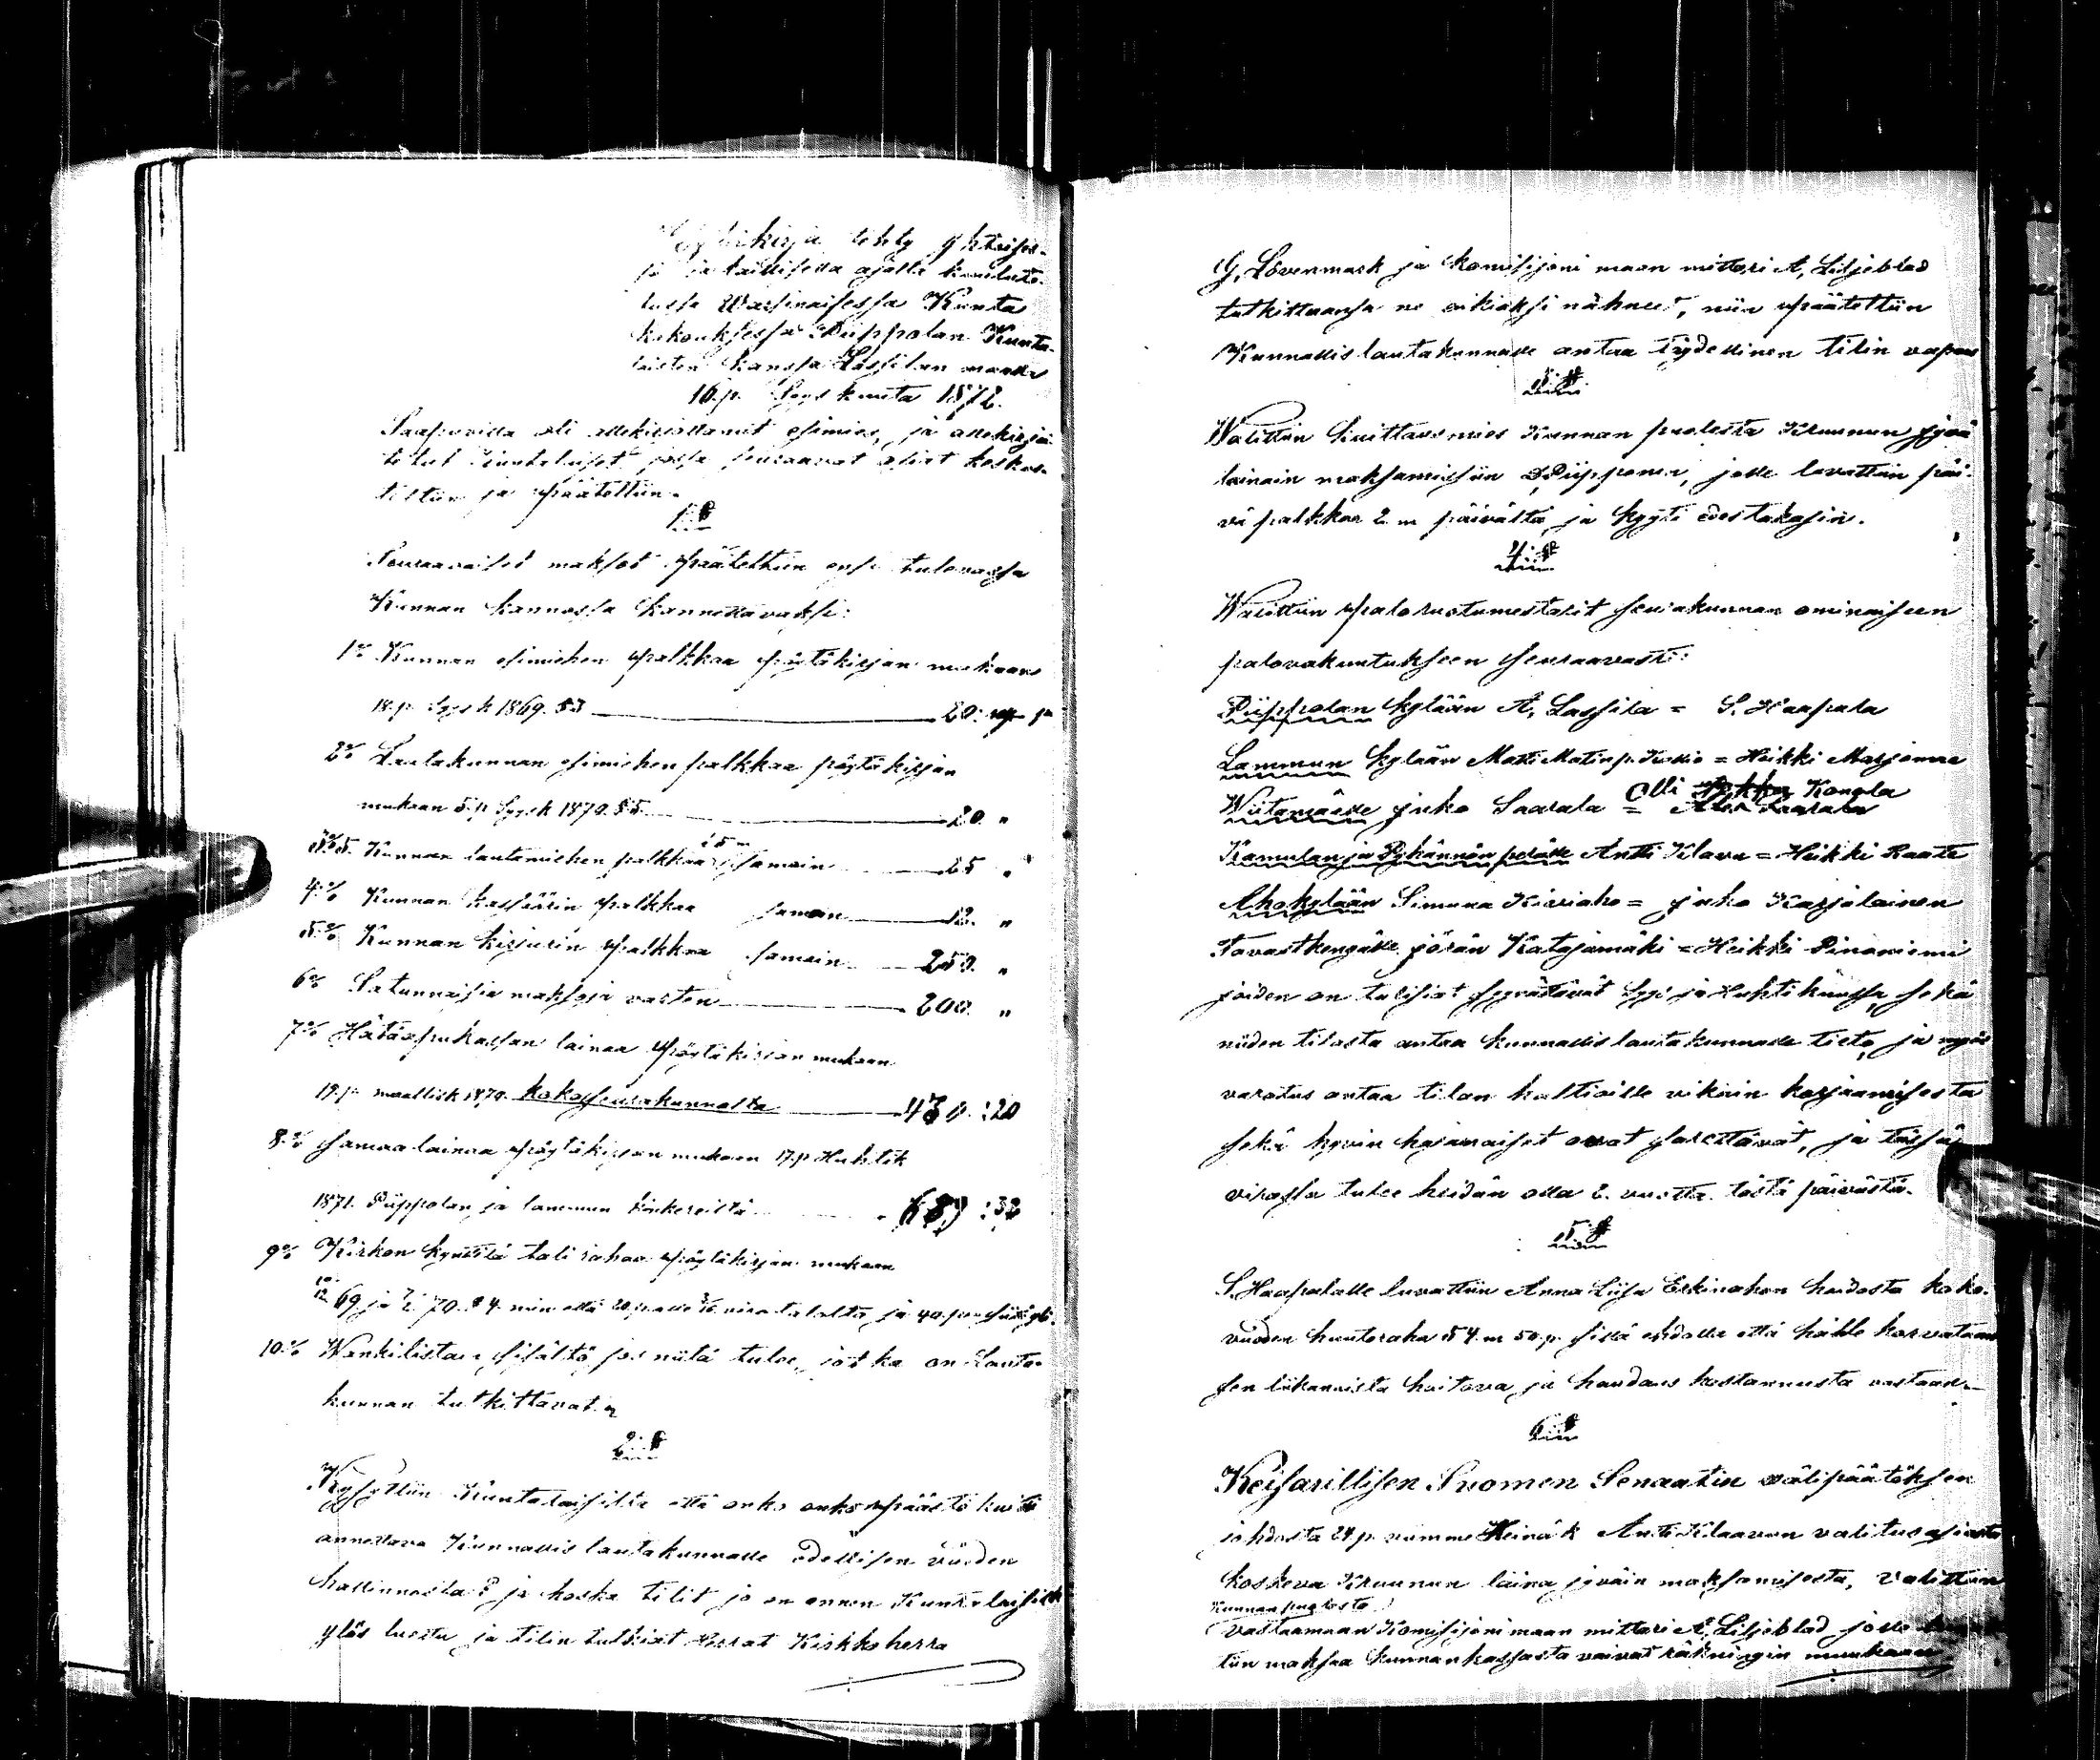 Pöytäkirja tehty yhteises-
sä ja laillisella ajalla kuulute-
tussa Warsinaisessa Kunta
kokouksessa Piippolan Kunta-
laisten kanssa Lassilan maalla
16.p. Syys kuuta 1872.
Saapuvilla oli allekirjottanut esimies, ja allekirjoi-
tetut Kuntalaiset jossa seuraavat asiat keskus-
teltiin ja päätettiin.
1 §
Seuraavaiset maksot päätettiin ensi tulevassa
Kunnan kannossa kannettavaksi:
1:o Kunnan esimiehen palkkaa pöytäkirjan mukaan
18.p. Syysk 1869. § 3 20:
2:o Lautakunnan esimiehen palkkaa pöytäkirjan
mukaan 5.p Syysk 1870. § 5. 20. "
3:o Kunnan lautamiehen palkkaa samoin 25 "
4:o Kunnan kassöörin palkkaa samoin 12. "
5:o Kunnan kirjurin palkkaa samoin 250. "
6:o Satunnaisia maksoja varten 200. "
7:o Hätäapukassan lainaa pöytäkirjan mukaan
19.p. maalisk 1870. koko seurakunnasta :20
8:o samaa lainaa pöytäkirjan mukaan 17.p Huhtik
1871. Piippolan ja lammun kinkereiltä :32
9:o Kirkon kynttilä tali rahaa pöytäkirjan mukaan
69 ja 70. § 4. niin että 20.p
10:o Wankilistan sisältö jos niitä tulee, jotka on Lauta-
kunnan tutkittavat.
2 §
Kysyttiin Kuntalaisilta että onko päästö kuitti
annettava Kunnallis lautakunnalle edellisen vuoden
hallinnosta? ja koska tilit jo on ennen Kuntalaisille
ylös luettu ja tilin tutkiat Herrat Kirkkoherra
G. Lövenmark ja Komisijoni maan mittari A, Liljeblad
tutkittuansa ne oikiaksi nähneet, niin päätettiin
Kunnallis lautakunnalle antaa Täydellinen tilin vapaus
3 §
Walittiin kuittausmies Kunnan puolesta Kruunun jyvä
lainain maksamisiin P. Piipponen, jolle lavattiin päi-
vä palkkaa 2. m päivältä, ja kyyti edestakasin.
4: §
Walittiin Palorustumestarit seurakunnan ominaiseen
palovakuutukseen seuraavasti:
Piippolan kylään A. Lassila = S. Haapala
Lammun kylään Matti Matinp. = Heikki Marjomaa
Wiitamäelle juho Saarala = Olli Konola
Kamulan ja Pyhännän perälle Antti Kilava = Heikki Raate
Ahokylään Simuna Kiviaho = juho Karjalainen
Tavastkengälle jöran Katajamäki = Heikki Pinoniemi
joiden on tulisiat syynättävät Syys ja Huhti kuussa, sekä
niiden tilasta antaa kunnallis lautakunnalle tieto, ja myös
varotus antaa tilan haltioille vikain korjaamisesta
sekä hyvin hajanaiset ovat särettävät, ja tässä
virassa tulee heidän olla 2. vuotta tästä päivästä.
5. §
S. Haapalalle luvattiin Anna Liisa Erkinahon hoidosta koko-
vuoden huutoraha 54. m 50.p. sillä ehdolla että hänelle korvataan
sen liikanaista hoitava, ja haudaus kostannusta vastaan.
6 §
Keisarillisen Suomen Senaatin välipäätöksen
johdosta 24.p. viimme Heinäk Antti Kilaavan valitusasiasta
koskeva Kruunun laina jyväin maksamisesta, Valittiin
Kunnan puolesta
vastaamaan Komisijoni maan mittari A, Liljeblad jolle
tiin maksaa kunnan kassasta vaivat räkningin mukaan